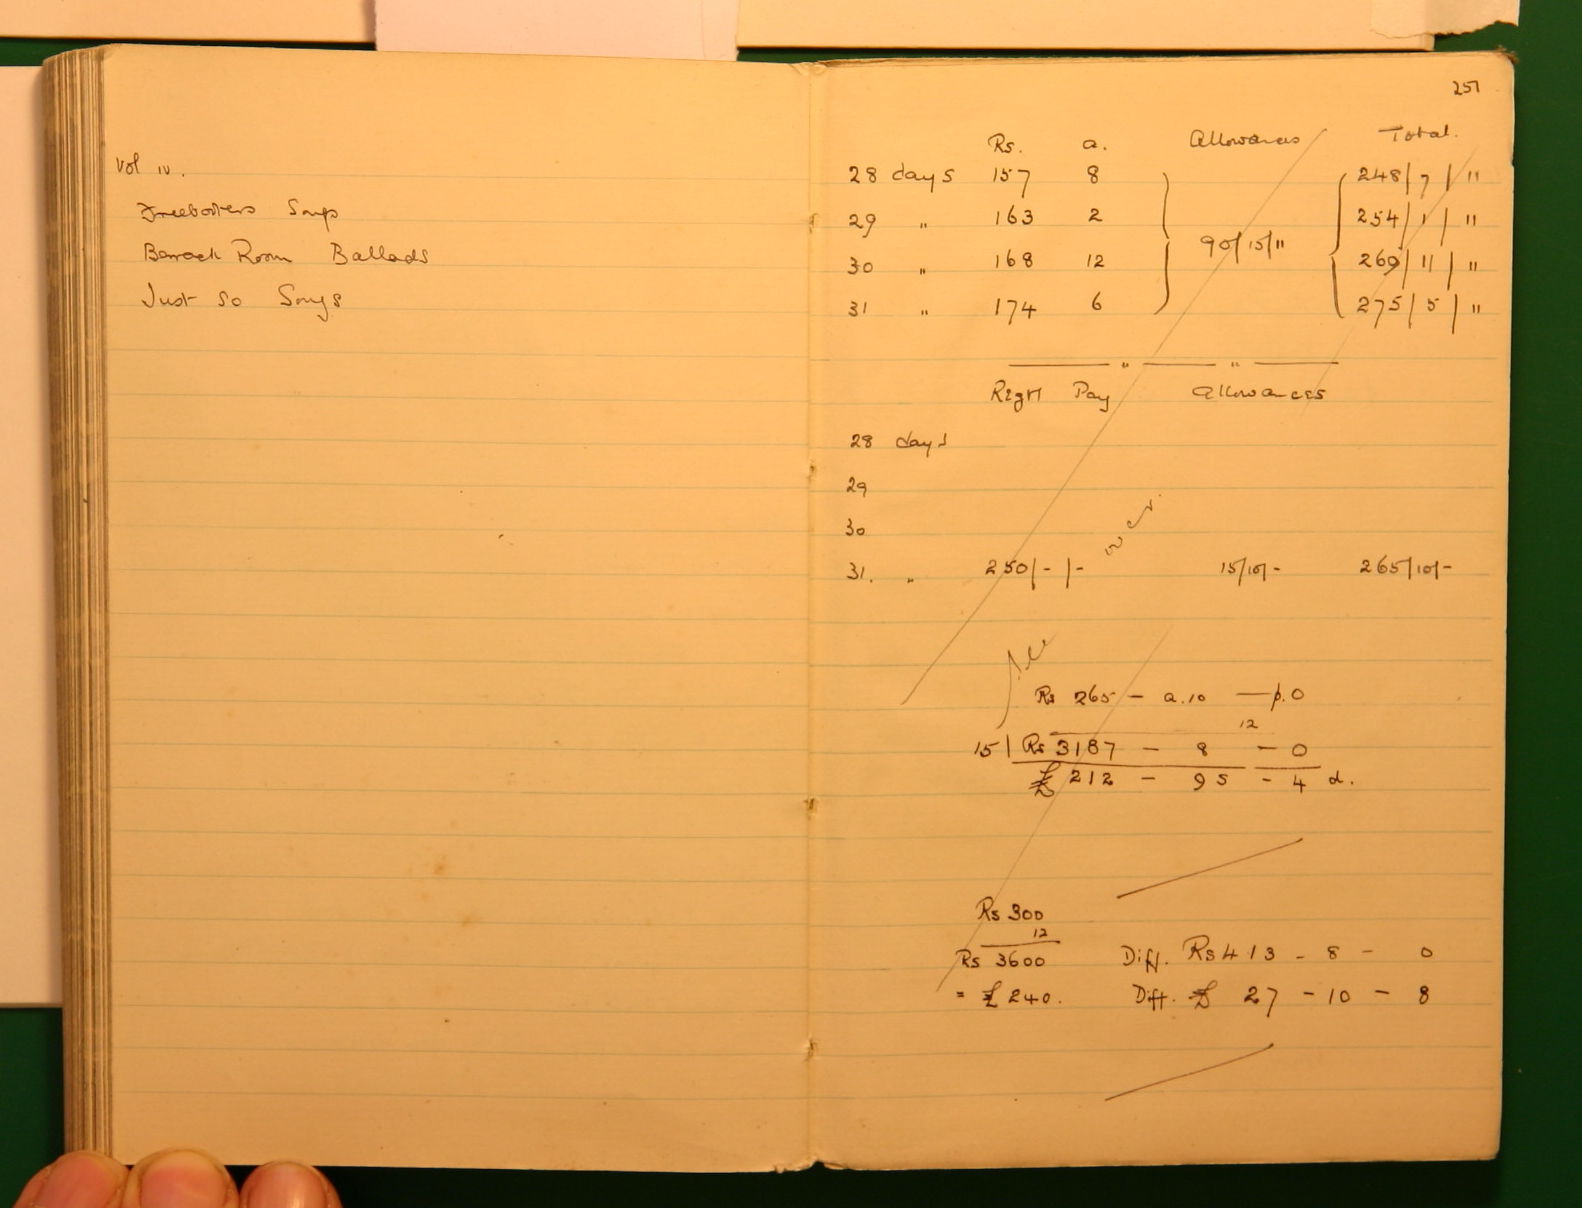 Vol IV.
Freebooters Songs
Barrack Room Ballads
Just so Songs
251
Rs. a. Allowances Total.
28 days 157 8 248/7/"
29 " 163 2 254/1/"
90/15/"
30 " 168 12 269/11/"
31 " 174 6 275/5/"
" "
Regtl Pay Allowances
28 days
29
30
31. " 250/-/- 15/10/- 265/10/-
Rs 265 - a.10 - p.0
12
15 | Rs 3187 - 8 - 0
£ 212 - 9s - 4 d.
Rs 300
12
Rs 3600 Diff. Rs 413 - 8 - 0
= £ 240. Diff. £ 27 - 10 - 8